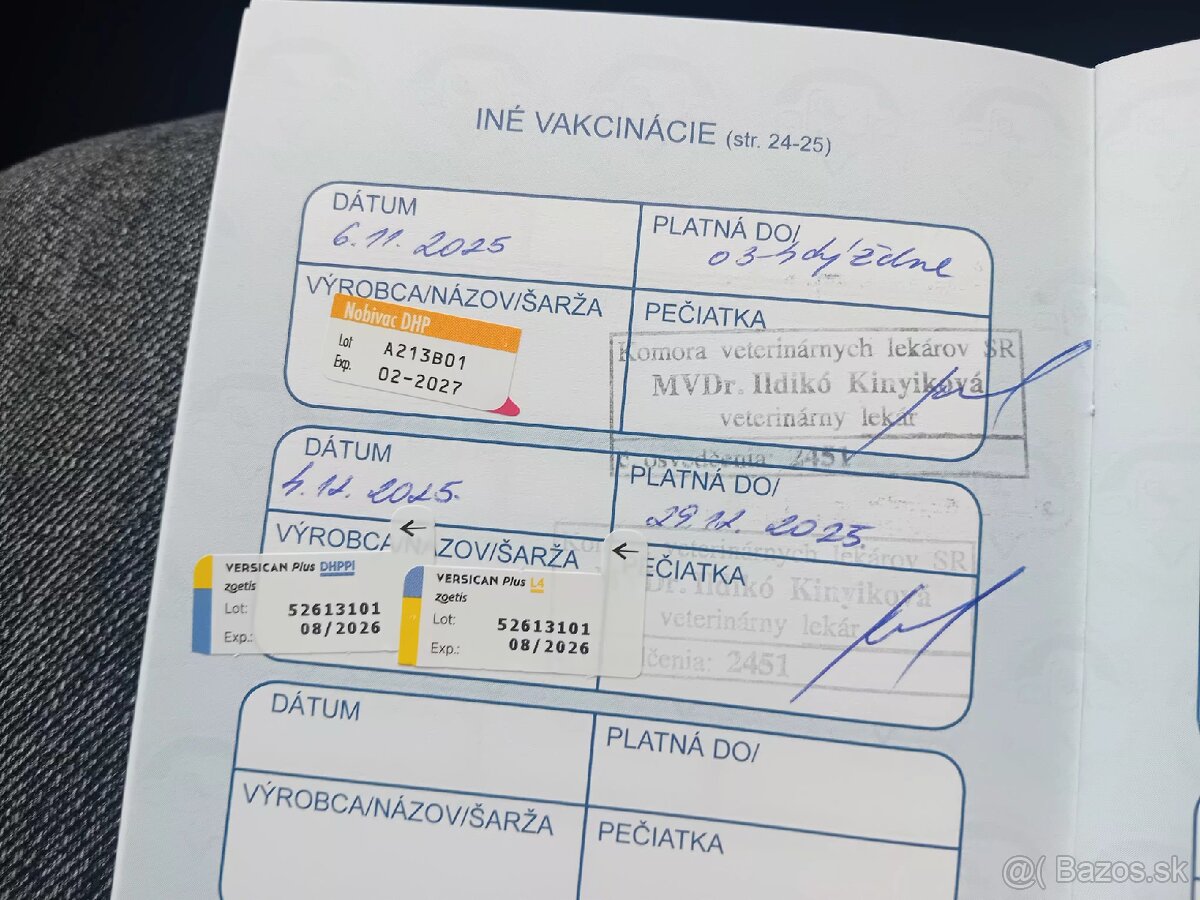 INÉ VAKCINÁCIE (str. 24-25)
DÁTUM
6.11. 2025
PLATNÁ DO/
o 3-4 týždne
VÝROBCA/NÁZOV/ŠARŽA
Nobivac DHP
Lot A213B01
Exp. 02-2027
PEČIATKA
Komora veterinárnych lekárov SR
MVDr. Ildikó Kinyiková
veterinárny lekár
osvedčenia: 2451
DÁTUM
4.12. 2025.
PLATNÁ DO/
29.12. 2025
VÝROBCA ZOV/ŠARŽA
VERSICAN Plus DHPPi
zoetis
Lot: 52613101
Exp.: 08/2026
VERSICAN Plus L4
zoetis
Lot: 52613101
Exp.: 08/2026
PEČIATKA
veterinárnych lekárov SR
Dr. Ildikó Kinyiková
veterinárny lekár
čenia: 2451
DÁTUM
PLATNÁ DO/
VÝROBCA/NÁZOV/ŠARŽA
PEČIATKA
@( Bazos.sk